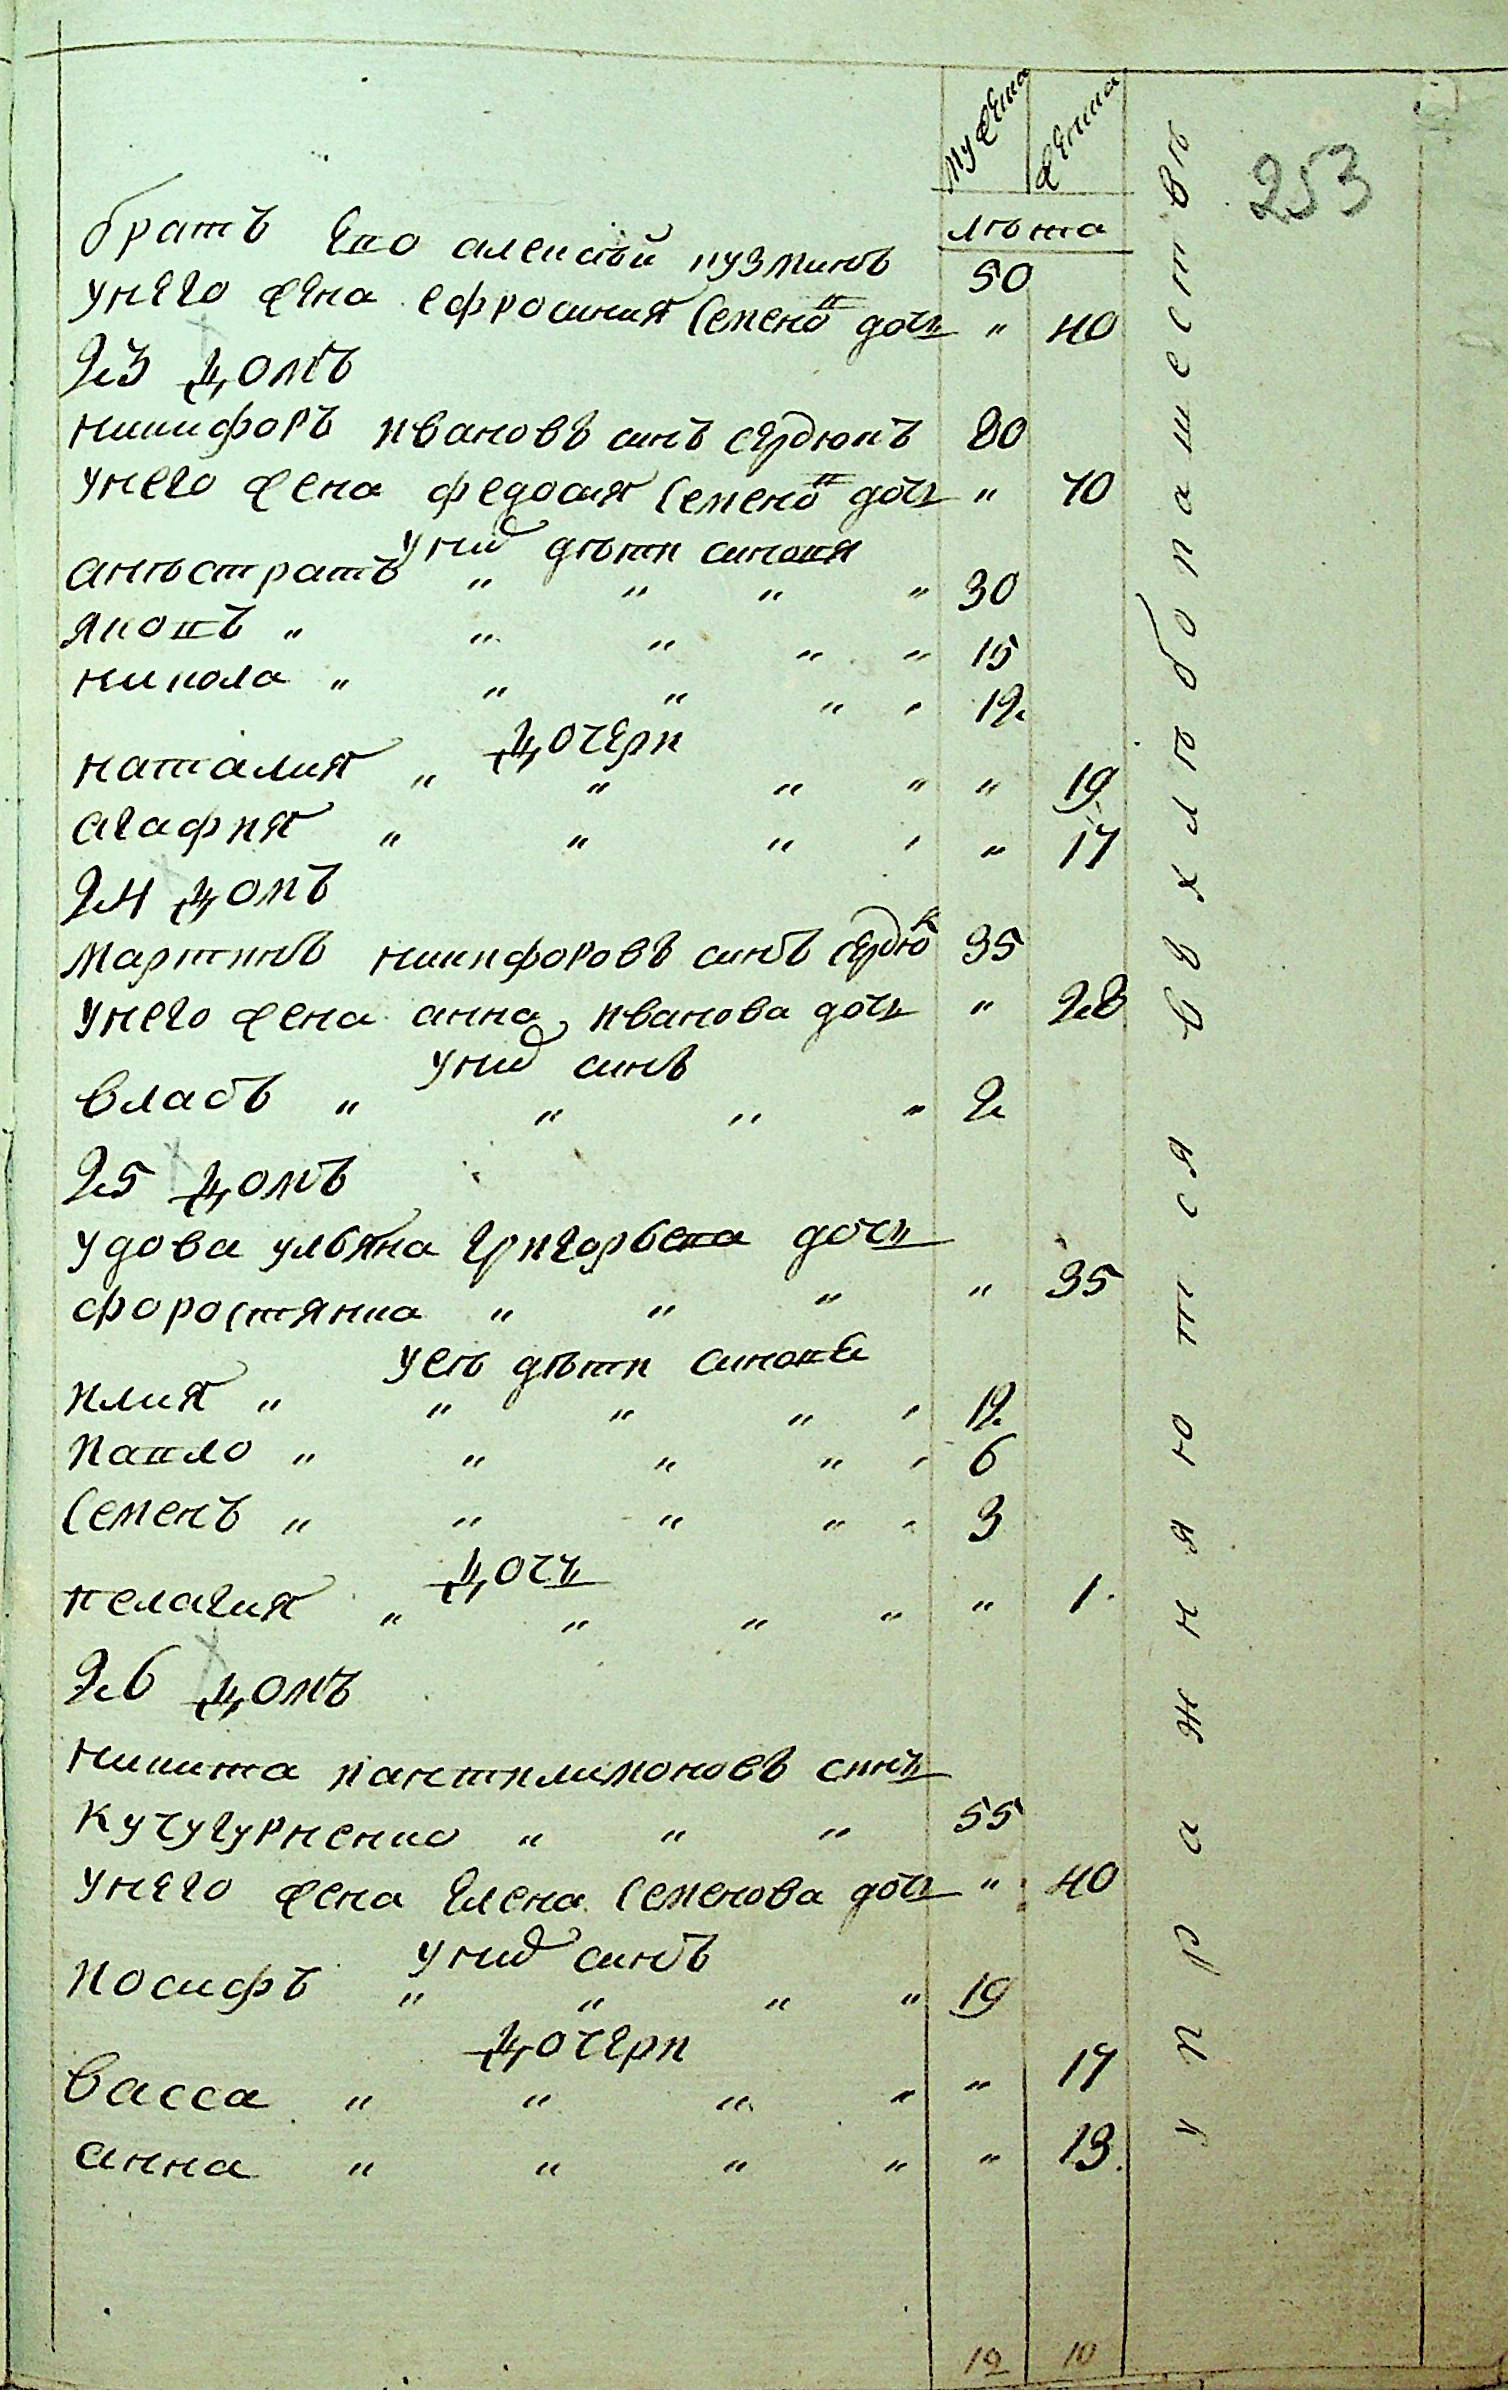 253
мужеска женска
лѣта
братъ Его алексѣй кузминъ 50
унего жена ефросиния Семено в дочь " 40
23 домъ
никифоръ ивановъ синъ сердюкъ 80
унего жена федосия Семено в дочь " 70
уних дѣти синовя
анѣстратъ " " " " 30
яковъ " " " " " 15
никола " " " " " 12
дочери
наталия " " " " " 19
агафия " " " " " 17
24 домъ
мартинъ никифоровъ синъ сердюк 35
унего жена анна иванова дочь " 28
уних синъ
власъ " " " " 2
25 домъ
удова уляна григорьева дочь
форостянка " " " " 35
уеѣ дѣти синовѣ
илия " " " " " 12
павло " " " " " 6
Семенъ " " " " " 3
дочь
пелагия " " " " " 1
26 домъ
никита пантилимоновъ синъ
кучугурненко " " " 55
унего жена Елена Семенова дочь " 40
уних синъ
иосифъ " " " " 19
дочери
васса " " " " " 17
анна " " " " " 13
12 10
упражняются в хлѣбопашествѣ